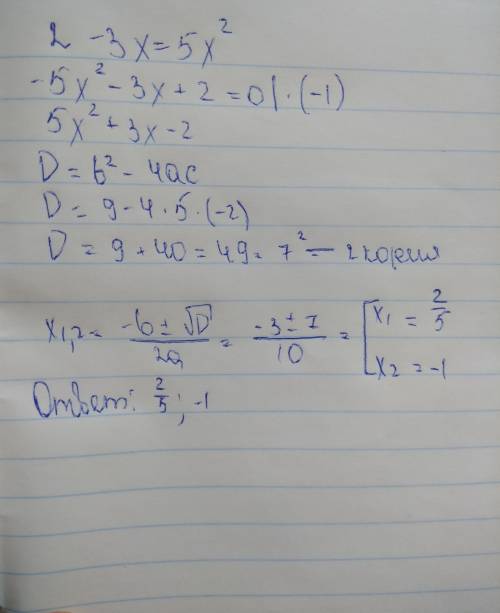 2 - 3x = 5x²
-5x² - 3x + 2 = 0 | · (-1)
5x² + 3x - 2
D = b² - 4ac
D = 9 - 4 · 5 · (-2)
D = 9 + 40 = 49 = 7² — 2 корня
x1,2 = -b ± √D / 2a = -3 ± 7 / 10 = [ x1 = 2/5
x2 = -1
Ответ: 2/5 ; -1